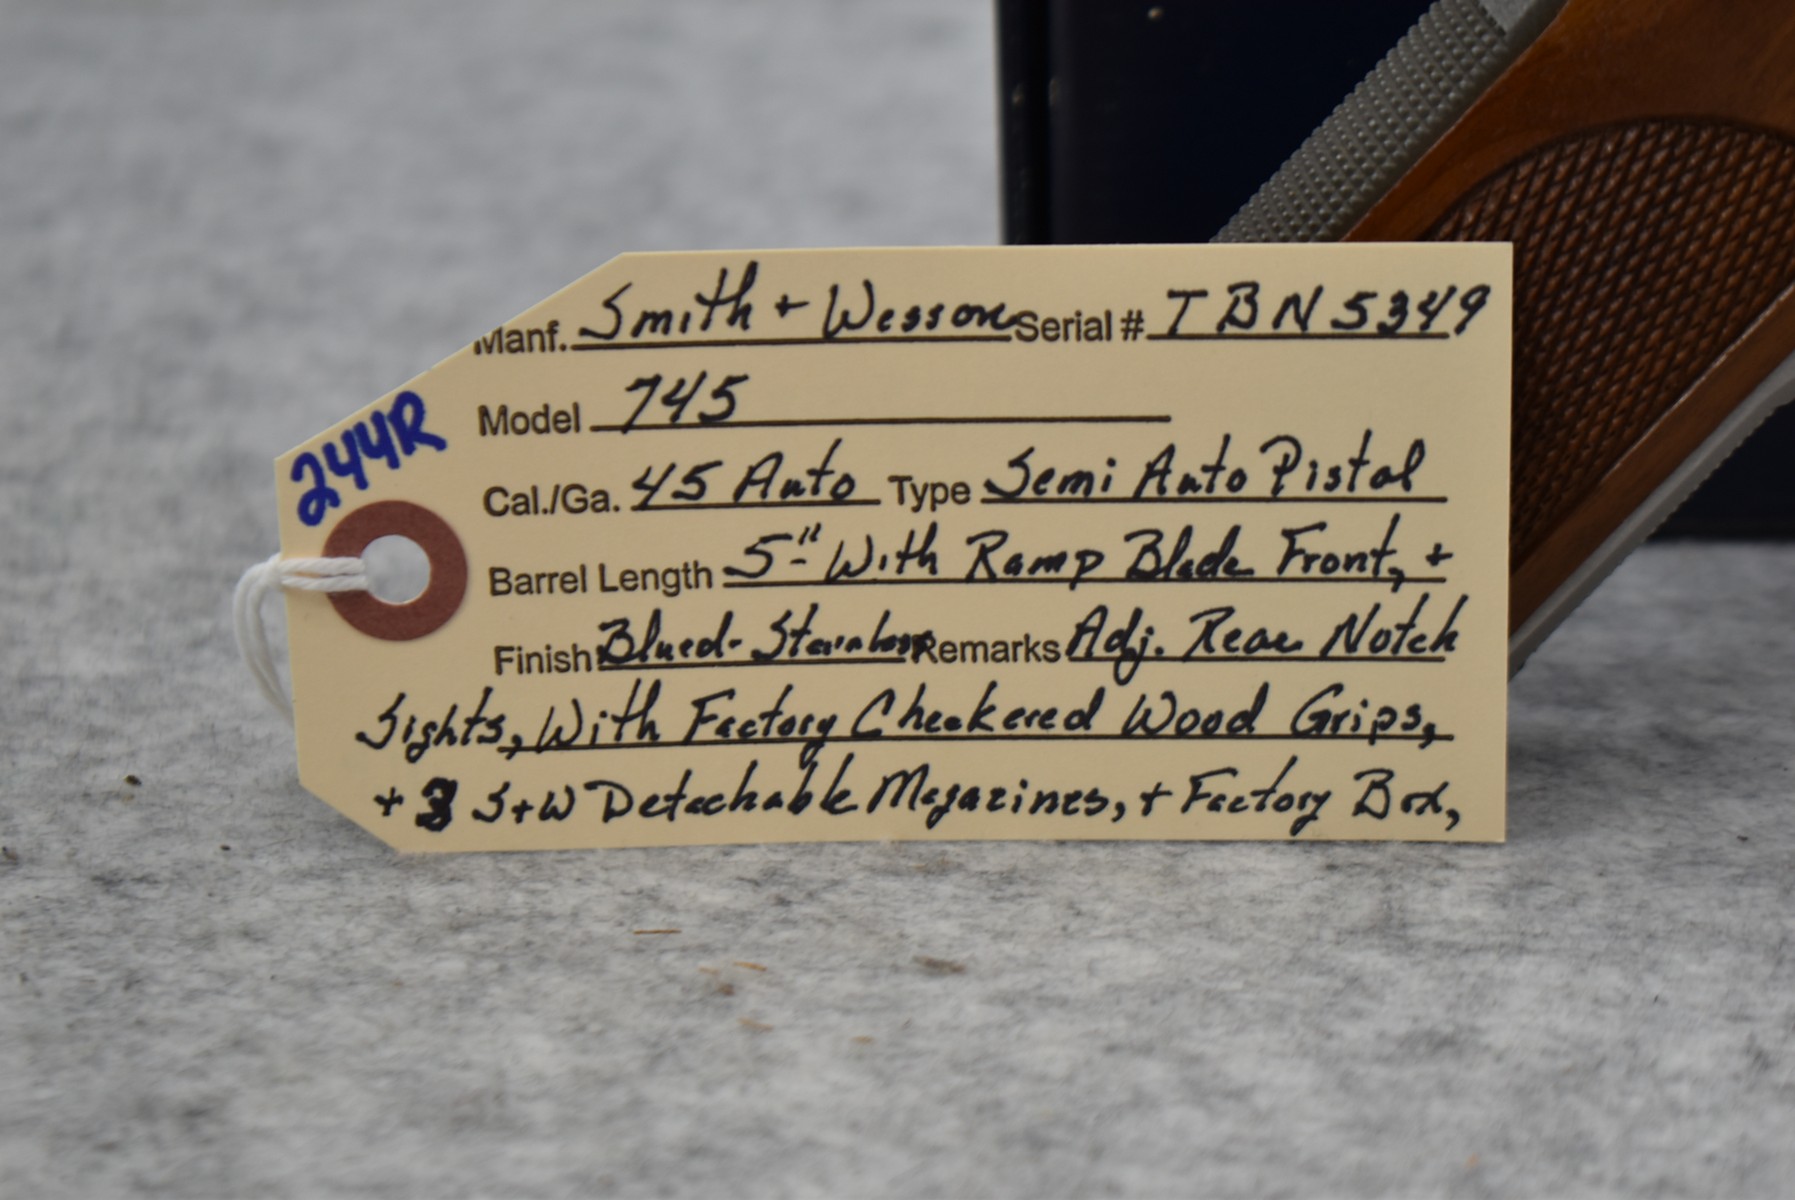 Manf. Smith + Wesson Serial # TBN5349
Model 745
244R
Cal./Ga. 45 Auto Type Semi Auto Pistol
Barrel Length 5" With Ramp Blade Front, +
Finish Blued-Stainless Remarks Adj. Rear Notch
Sights, With Factory Checkered Wood Grips,
+ 3 S+W Detachable Magazines, + Factory Box,